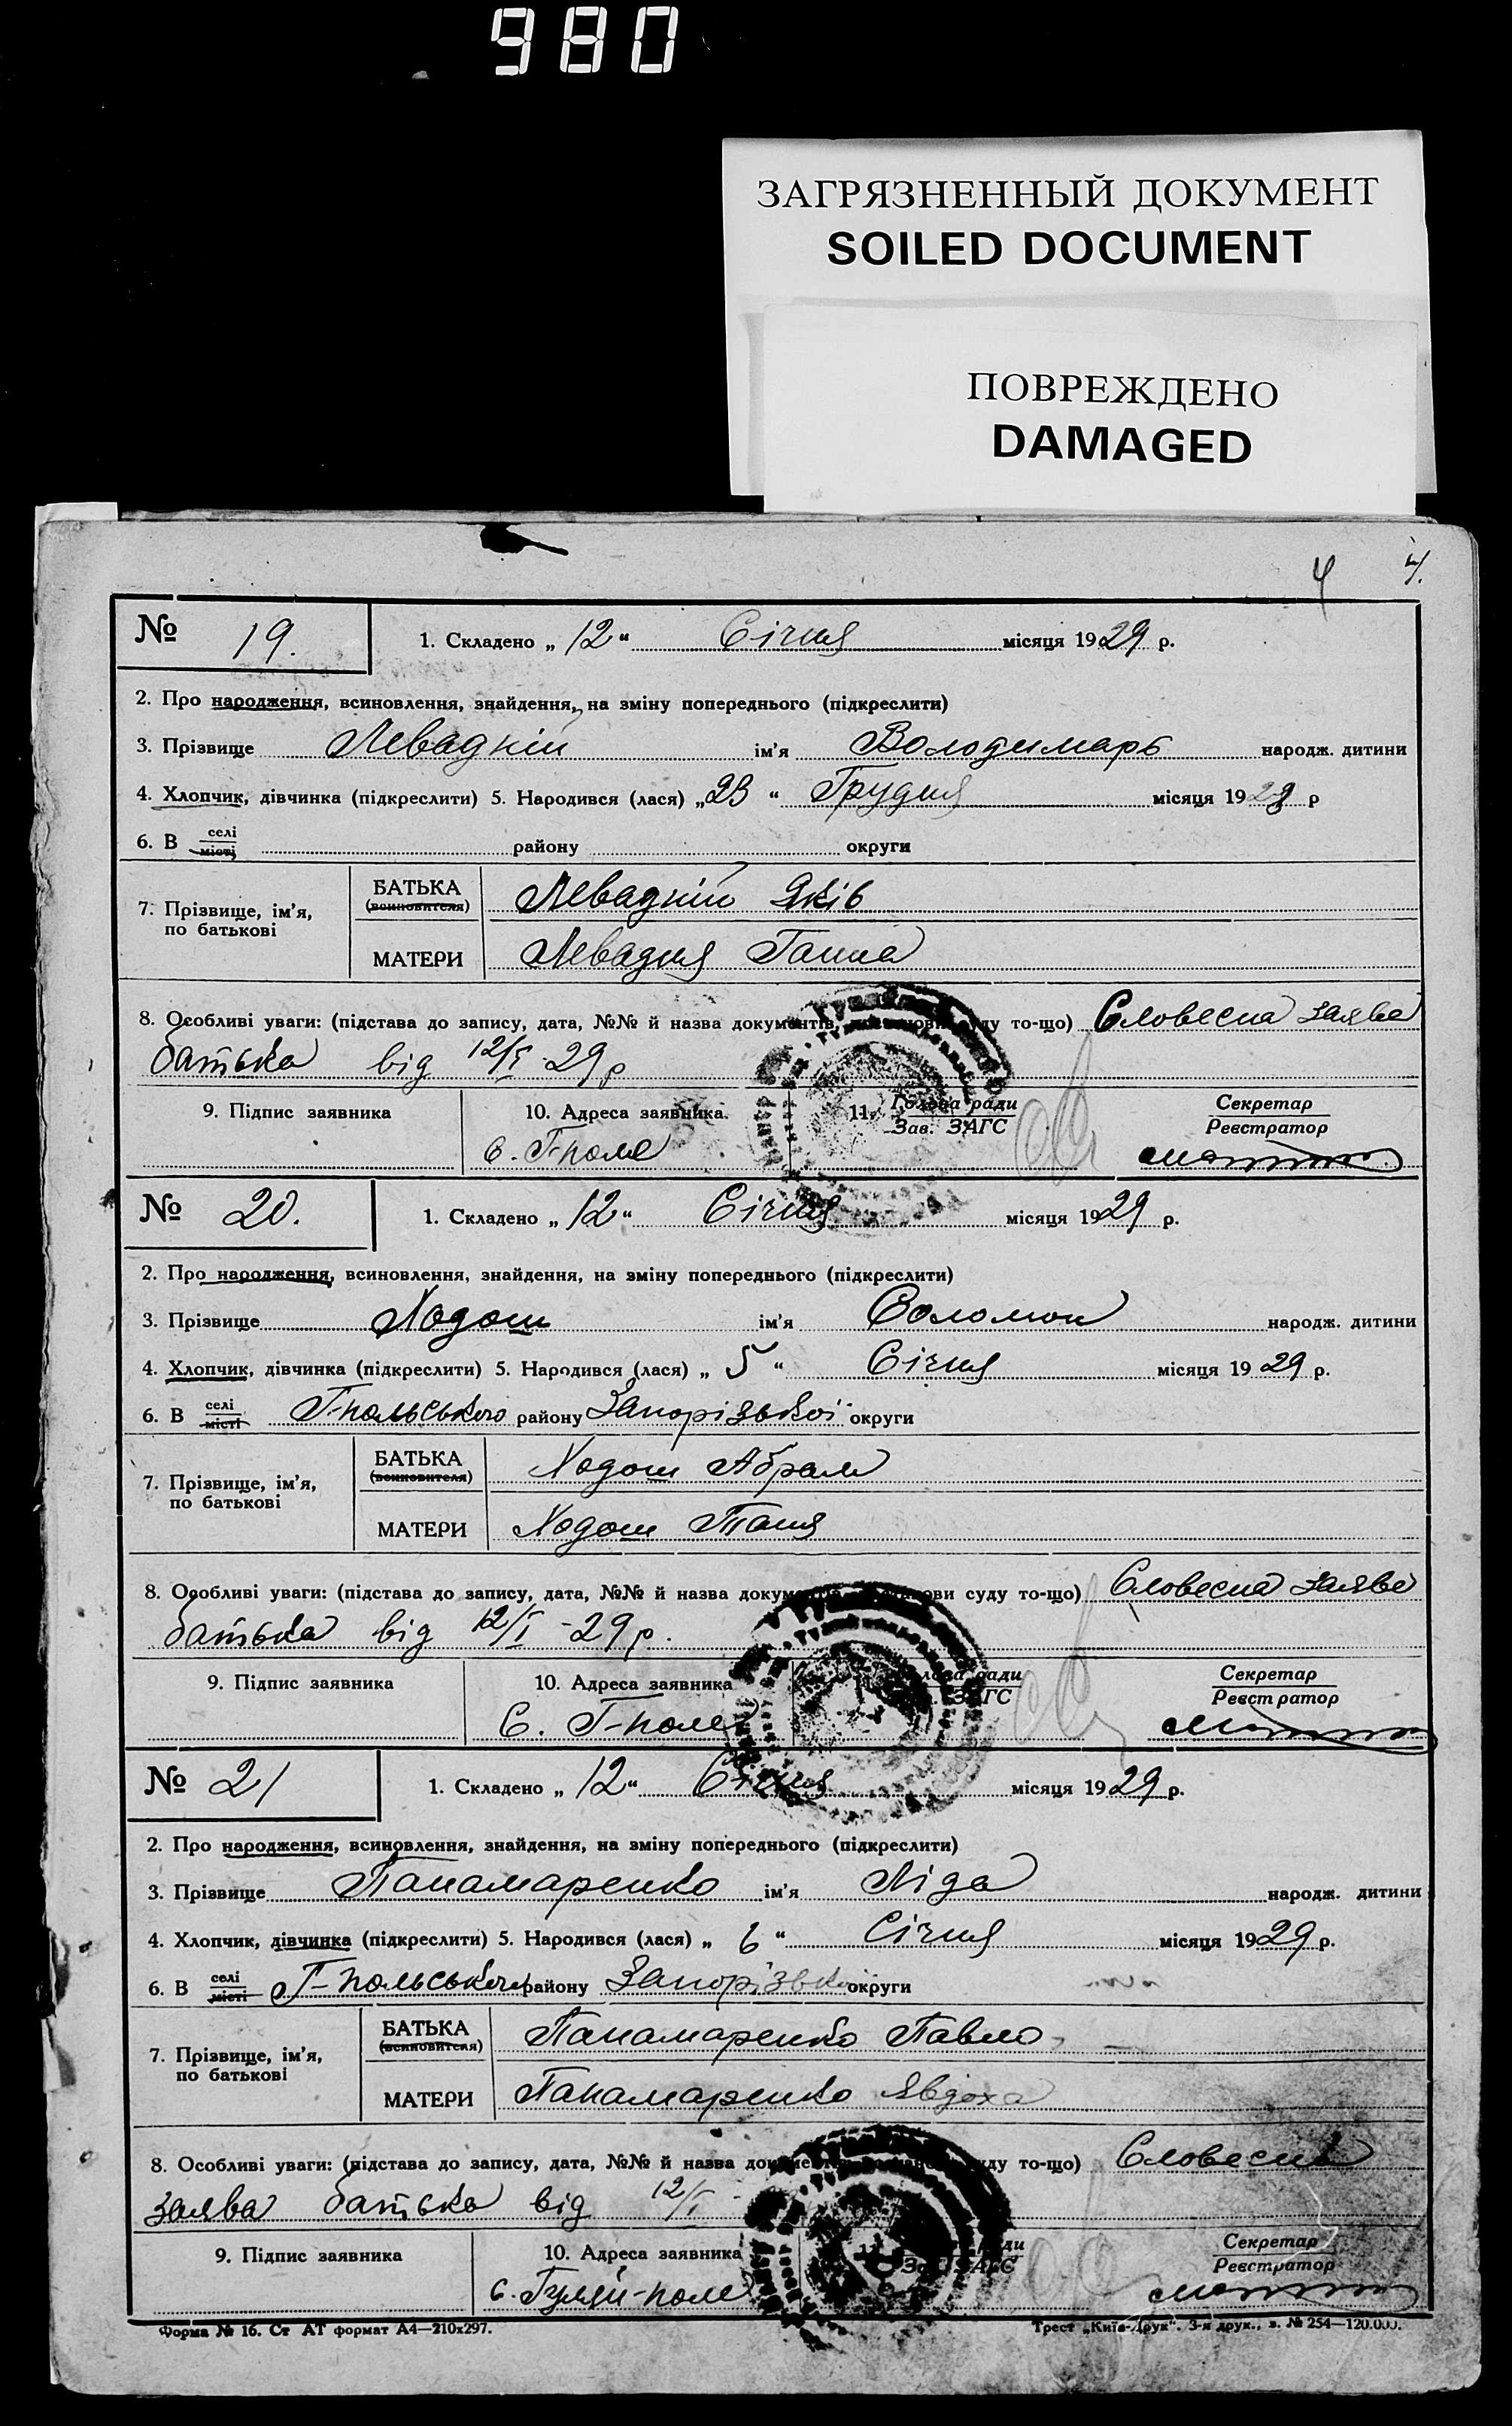 980
ЗАГРЯЗНЕННЫЙ ДОКУМЕНТ
SOILED DOCUMENT
ПОВРЕЖДЕНО
DAMAGED
4 4.
№ 19. 1. Складено „ 12 “ Січня місяця 1929 р.
2. Про народження, всиновлення, знайдення, на зміну попереднього (підкреслити)
3. Прізвище Левадній ім'я Володимарь народж. дитини
4. Хлопчик, дівчинка (підкреслити) 5. Народився (лася) „ 23 “ Грудня місяця 19 р
6. В селі місті району округи
7. Прізвище, ім'я, по батькові
БАТЬКА (всиновителя) Левадній Яків
МАТЕРИ Левадня Ганна
8. Особливі уваги: (підстава до запису, дата, №№ й назва документів, суду то-що) Словесна заява
батька від 12/I 29 р
9. Підпис заявника 10. Адреса заявника. 11. Голова ради Зав. ЗАГС Секретар Реєстратор
с. Г-поле
№ 20. 1. Складено „ 12 “ Січня місяця 1929 р.
2. Про народження, всиновлення, знайдення, на зміну попереднього (підкреслити)
3. Прізвище Ходош ім'я Соломон народж. дитини
4. Хлопчик, дівчинка (підкреслити) 5. Народився (лася) „ 5 “ Січня місяця 1929 р.
6. В селі місті Г-польського району Запорізької округи
7. Прізвище, ім'я, по батькові
БАТЬКА (всиновителя) Ходош Абрам
МАТЕРИ Ходош Таня
8. Особливі уваги: (підстава до запису, дата, №№ й назва документів, суду то-що) Словесна заява
батька від 12/I -29 р.
9. Підпис заявника 10. Адреса заявника ради ЗАГС Секретар Реєстратор
С. Г-поле
№ 21 1. Складено „ 12 “ Січня місяця 1929 р.
2. Про народження, всиновлення, знайдення, на зміну попереднього (підкреслити)
3. Прізвище Панамаренко ім'я Ліда народж. дитини
4. Хлопчик, дівчинка (підкреслити) 5. Народився (лася) „ 6 “ Січня місяця 1929 р.
6. В селі місті Г-польського району Запорізької округи
7. Прізвище, ім'я, по батькові
БАТЬКА (всиновителя) Панамаренко Павло
МАТЕРИ Панамаренко Явдоха
8. Особливі уваги: (підстава до запису, дата, №№ й назва то-що) Словесна
заява батька від 12/I
9. Підпис заявника 10. Адреса заявника 11. Секретар Реєстратор
с. Гуляй-поле
Форма № 16. Ст АТ формат А4—210х297. Трест „Київ-Друк“. 3-я друк., з. № 254—120.000.